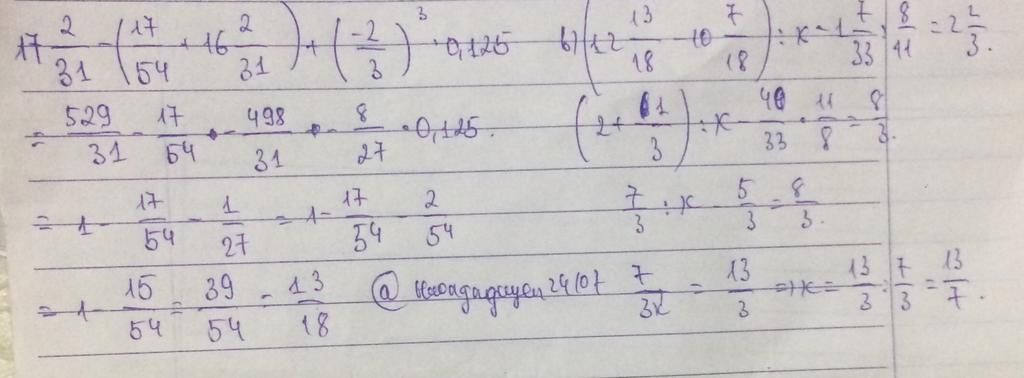 17 2/31 - (17/54 + 16 2/31) + (-2/3)^3 · 0,125
= 529/31 - 17/54 - 498/31 - 8/27 · 0,125.
= 1 - 17/54 - 1/27 = 1 - 17/54 - 2/54
= 1 - 15/54 = 39/54 = 13/18
@ 24107
b) (12 13/18 - 10 7/18) : x - 1 7/33 : 8/11 = 2 2/3.
(2 + 1/3) : x - 40/33 · 11/8 = 8/3.
7/3 : x - 5/3 = 8/3.
7/3x = 13/3 => x = 13/3 : 7/3 = 13/7.